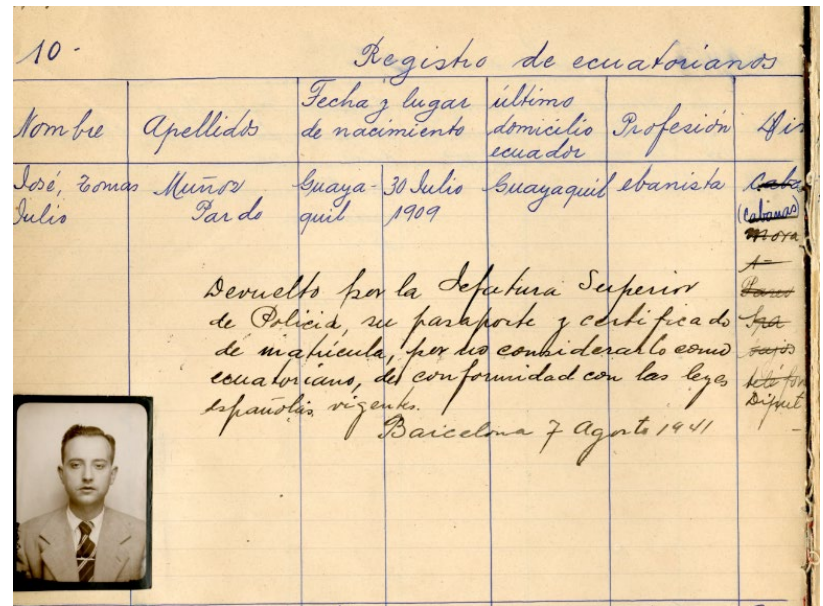 10.-
Registro de ecuatorianos
Nombre
Apellidos
Fecha y lugar
de nacimiento
último
domicilio
ecuador
Profesión
Dir
José, Tomas
Julio
Muñoz
Pardo
Guaya-
quil
30 Julio
1909
Guayaquil
ebanista
Caba
(Cabañas)
Devuelto por la Jefatura Superior
de Policia, su pasaporte y certificado
de matrícula, por no considerarlo como
ecuatoriano, de conformidad con las leyes
españolas vigentes.
Barcelona 7 Agosto 1941